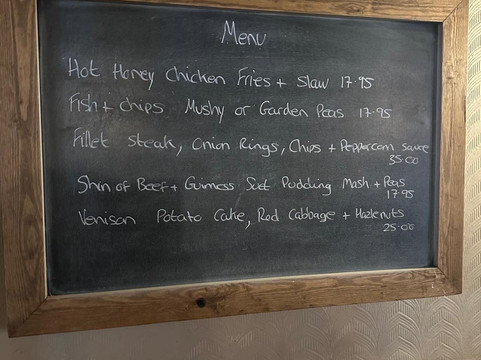 Menu
Hot Honey Chicken Fries + Slaw 17.95
Fish + chips Mushy or Garden Peas 17.95
Fillet steak, Onion Rings, Chips + Peppercorn Sauce
35.00
Shin of Beef + Guinness Suet Pudding Mash + Peas
17.95
Venison Potato Cake, Red Cabbage + Hazlenuts
25.00